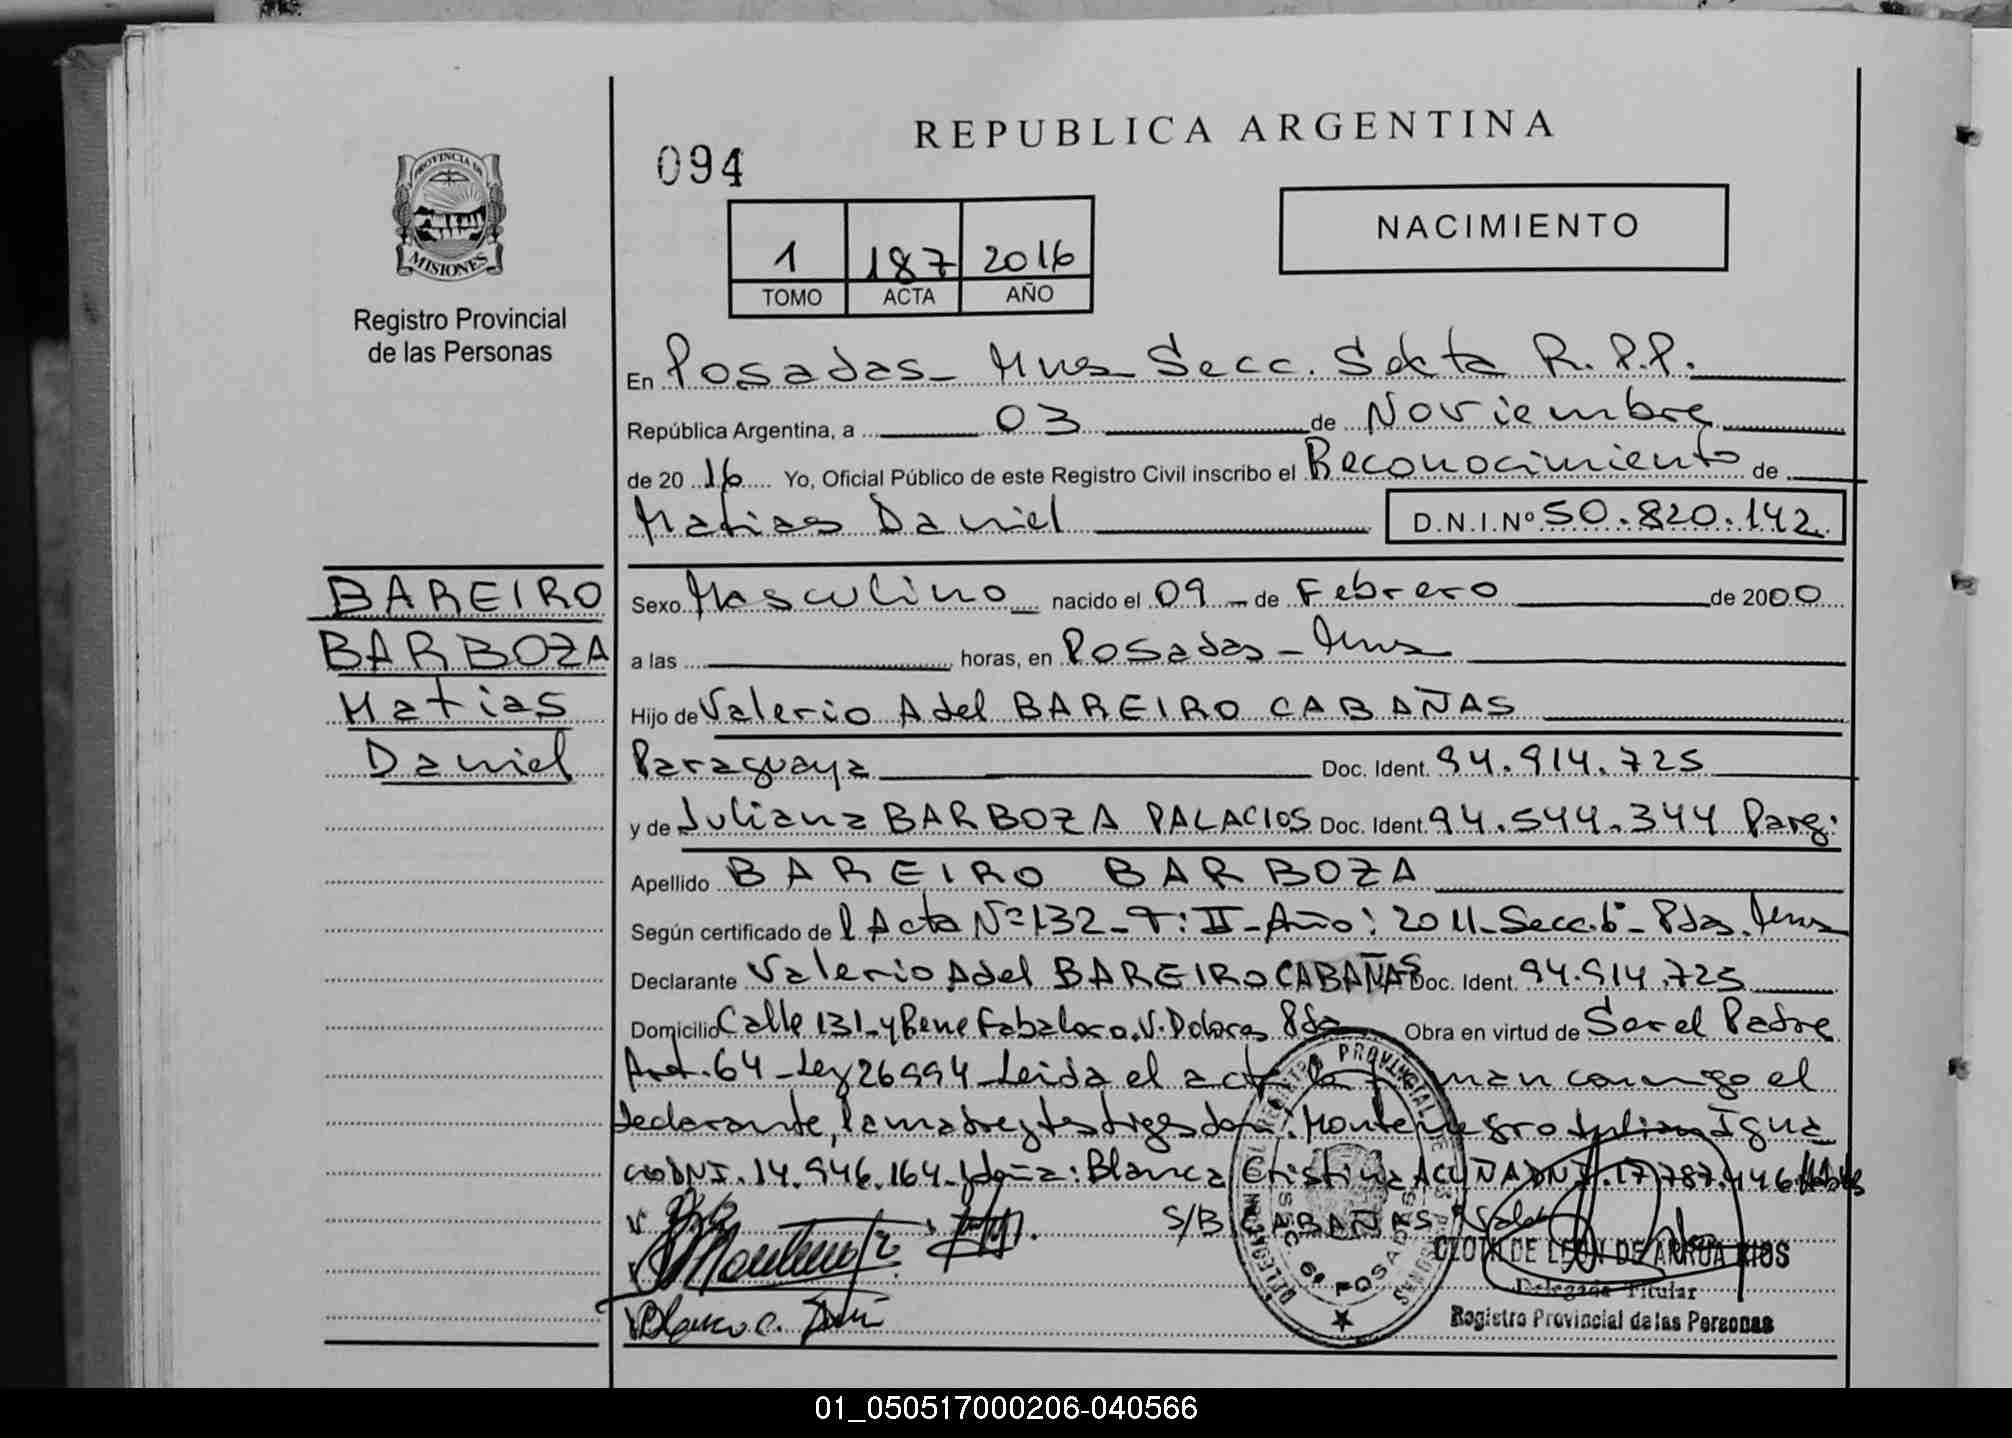 REPUBLICA ARGENTINA
094
PROVINCIA DE
MISIONES
Registro Provincial
de las Personas
NACIMIENTO
1 187 2016
TOMO ACTA AÑO
En Posadas - Mnes Secc. Sexta R.P.P.
República Argentina, a 03 de Noviembre
de 2016 Yo, Oficial Público de este Registro Civil inscribo el Reconocimiento de
Matias Daniel D.N.I.Nº 50.820.142.
BAREIRO
BARBOZA
Matias
Daniel
Sexo Masculino nacido el 09 - de Febrero de 2000
a las horas, en Posadas - Mnes
Hijo de Valerio Adel BAREIRO CABAÑAS
Paraguaya Doc. Ident. 94.914.725
y de Juliana BARBOZA PALACIOS Doc. Ident. 94.544.344 Parg:
Apellido BAREIRO BARBOZA
Según certificado de l Acta Nº 132 - T: II - Año: 2011 - Secc. 6º - Pdas. Mnes
Declarante Valerio Adel BAREIRO CABAÑAS Doc. Ident. 94.914.725
Domicilio Calle 131 - y Bene V. Dolores Pdas Obra en virtud de Ser el Padre
Art. 64 - Ley 26994 - Leida el acta la firman conmigo el
declarante, la madre y testigos don: Montenegro Julian Igna
cio DNI. 14.946.164 - y doña: Blanca Cristina ACUÑA DNI. 17.787.446
S/B CABAÑAS Vale
DELEGACION DEL REGISTRO PROVINCIAL DE LAS PERSONAS
SECC 6ª POSADAS
CLOTILDE LEON DE ARRUA RIOS
Delegada Titular
Registro Provincial de las Personas
01_050517000206-040566